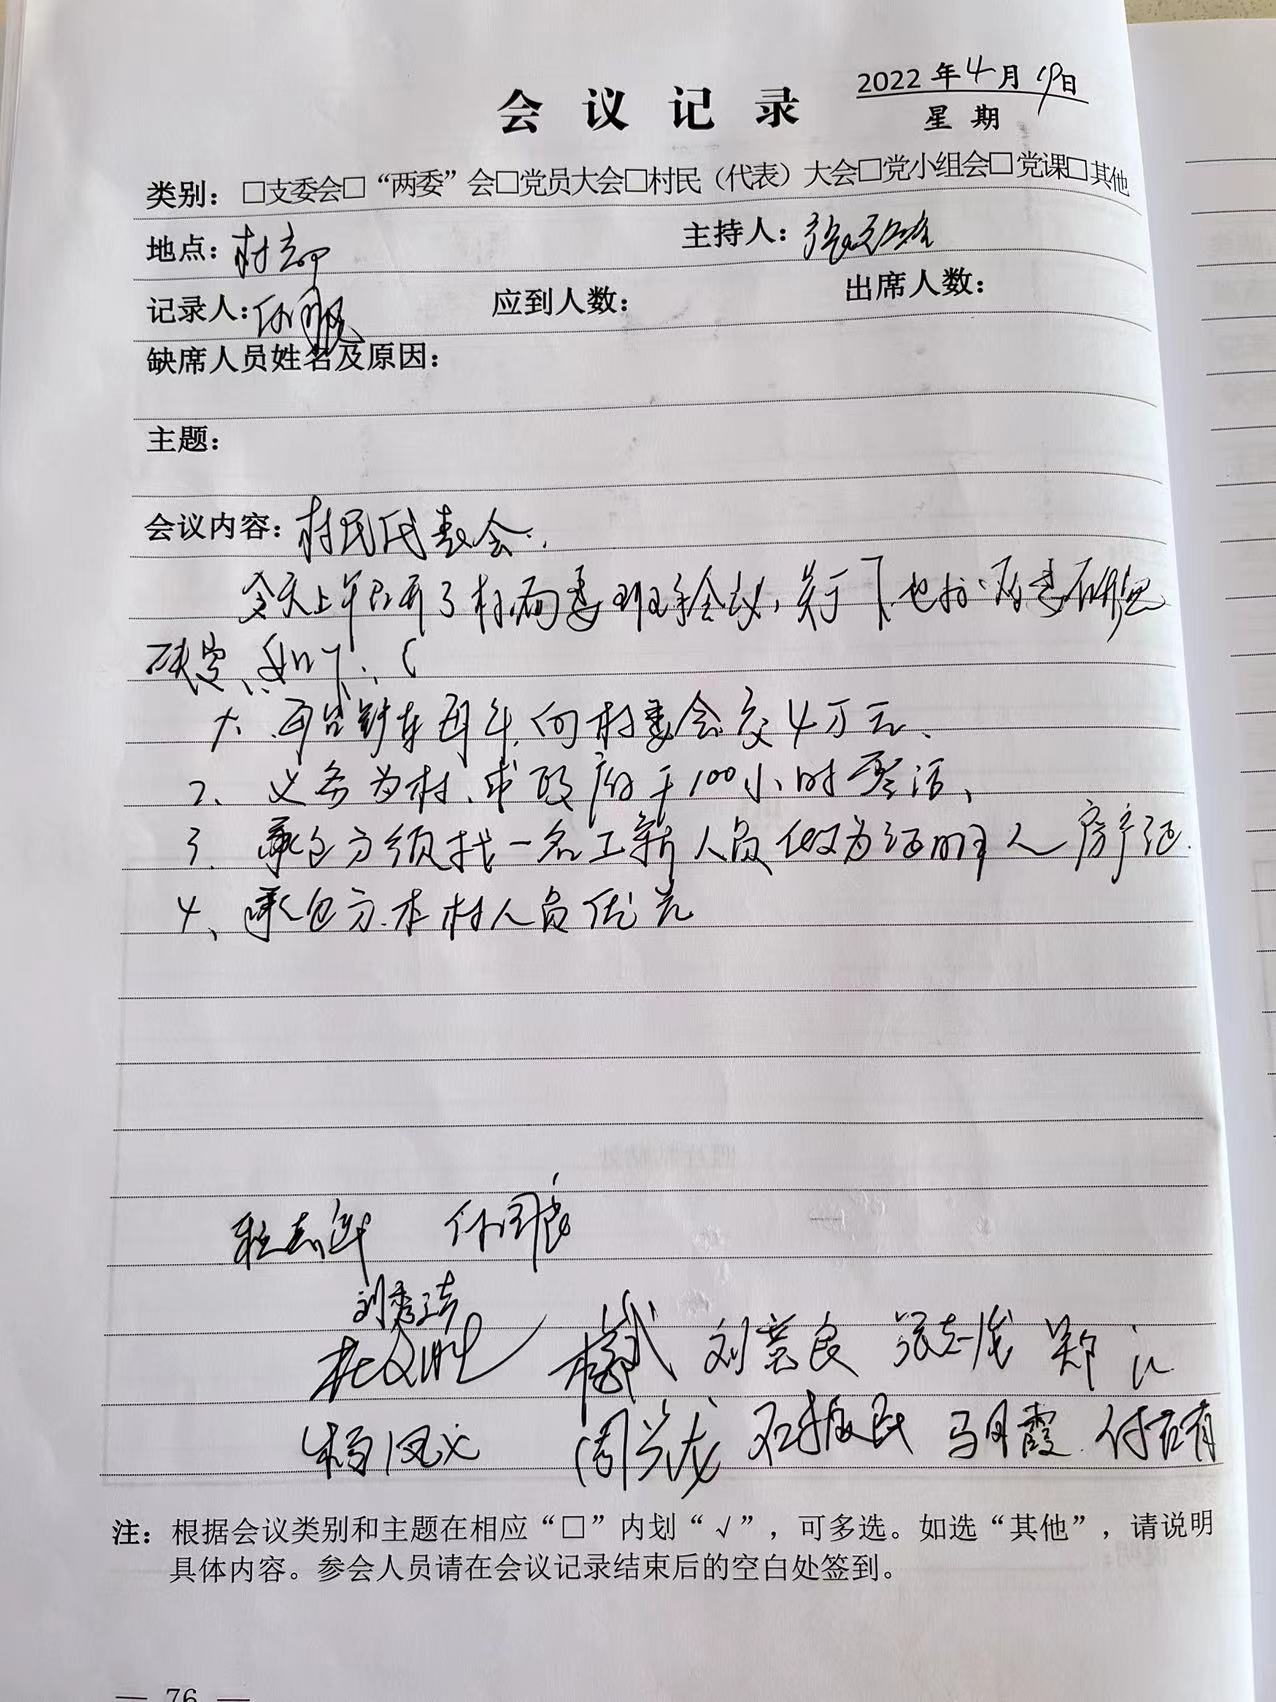 会议记录
2022年4月19日
星期
类别：□支委会□“两委”会□党员大会□村民（代表）大会□党小组会□党课□其他
地点：村部 主持人：
记录人： 应到人数： 出席人数：
缺席人员姓名及原因：
主题：
会议内容：村民代表会.
今天上午召开了村两委班子会议，关于 两委研究
决定、如下：
1、每台铲车每年向村委会交4万元、
2、义务为村、乡政府干100小时零活、
3、承包方须找一名工薪人员做为证明人 房产证.
4、承包方.本村人员优先
刘秀洁
杜文胜 刘景良 张志成 郑江
杨凤义 周兴龙 石振民 马月霞 付吉有
注：根据会议类别和主题在相应“□”内划“√”，可多选。如选“其他”，请说明
具体内容。参会人员请在会议记录结束后的空白处签到。
— 76 —